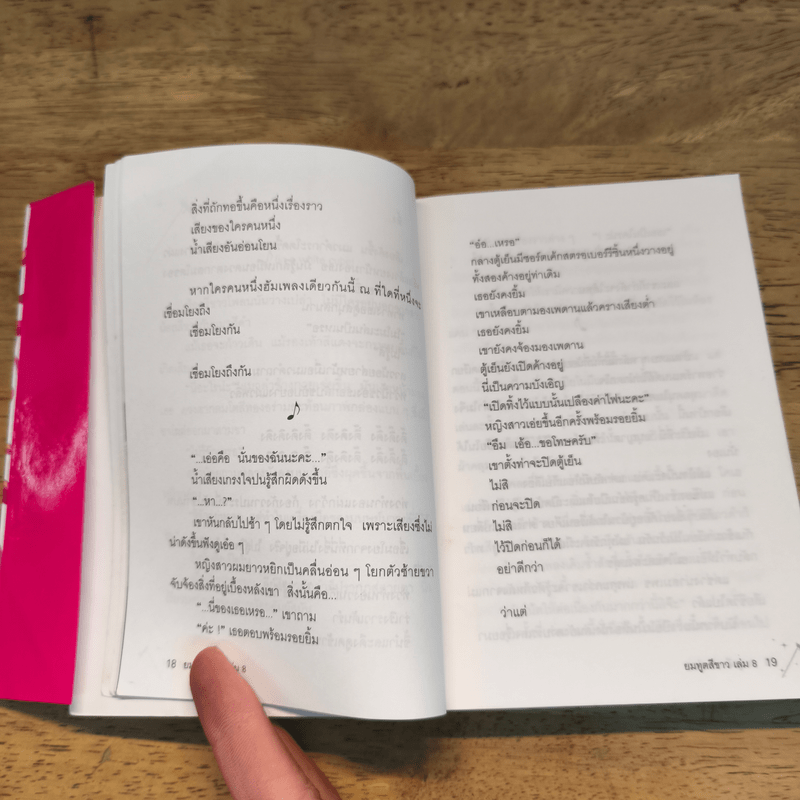 สิ่งที่ถักทอขึ้นคือหนึ่งเรื่องราว
เสียงของใครคนหนึ่ง
น้ำเสียงอันอ่อนโยน
หากใครคนหนึ่งฮัมเพลงเดียวกันนี้ ณ ที่ใดที่หนึ่งจะ
เชื่อมโยงถึง
เชื่อมโยงกัน
เชื่อมโยงถึงกัน
“...เอ่อคือ นั่นของฉันนะคะ...”
น้ำเสียงเกรงใจปนรู้สึกผิดดังขึ้น
“...หา...?”
เขาหันกลับไปช้า ๆ โดยไม่รู้สึกตกใจ เพราะเสียงซึ่งไม่
น่าดังขึ้นฟังดูเอ๋อ ๆ
หญิงสาวผมยาวหยิกเป็นคลื่นอ่อน ๆ โยกตัวซ้ายขวา
จับจ้องสิ่งที่อยู่เบื้องหลังเขา สิ่งนั้นคือ...
“...นี่ของเธอเหรอ...” เขาถาม
“ค่ะ !” เธอตอบพร้อมรอยยิ้ม
18 ยม 8
“อ๋อ...เหรอ”
กลางตู้เย็นมีชอร์ตเค้กสตรอเบอร์รีชิ้นหนึ่งวางอยู่
ทั้งสองค้างอยู่ท่าเดิม
เธอยังคงยิ้ม
เขาเหลือบตามองเพดานแล้วครางเสียงต่ำ
เธอยังคงยิ้ม
เขายังคงจ้องมองเพดาน
ตู้เย็นยังเปิดค้างอยู่
นี่เป็นความบังเอิญ
“เปิดทิ้งไว้แบบนั้นเปลืองค่าไฟนะคะ”
หญิงสาวเอ่ยขึ้นอีกครั้งพร้อมรอยยิ้ม
“อืม เอ้อ...ขอโทษครับ”
เขาตั้งท่าจะปิดตู้เย็น
ไม่สิ
ก่อนจะปิด
ไม่สิ
ไว้ปิดก่อนก็ได้
อย่าดีกว่า
ว่าแต่
ยมทูตสีขาว เล่ม 8 19